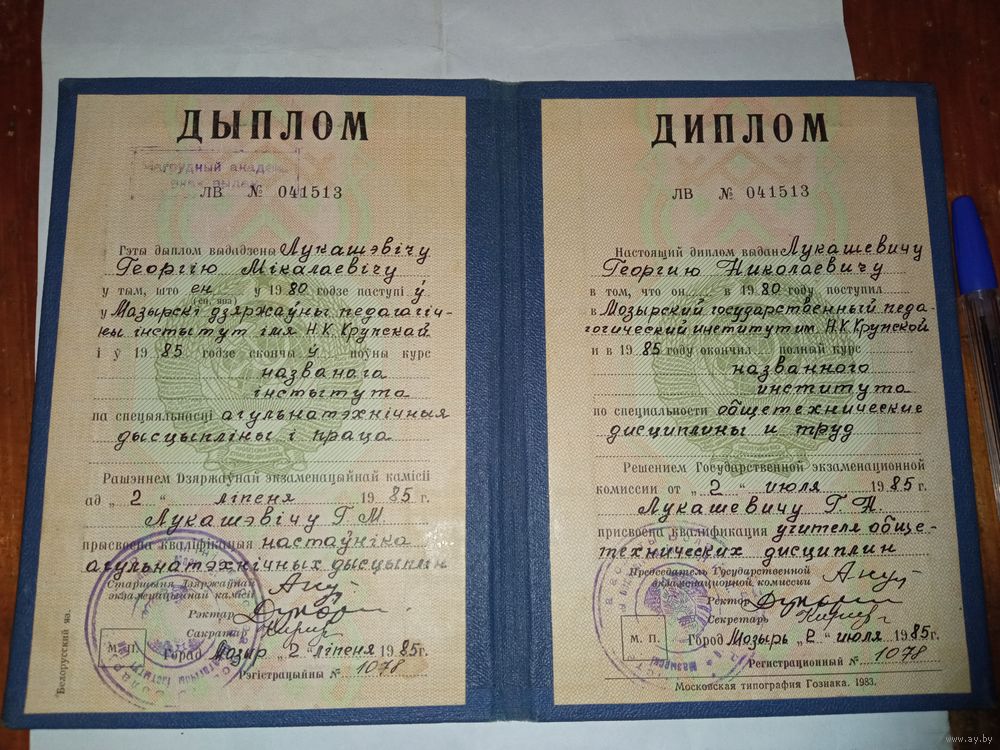 ДЫПЛОМ
Нагрудный акадэм.
знак выда
ЛВ № 041513
Гэты дыплом выдадзены Лукашэвічу
Георгію Мікалаевічу
у тым, што ён у 1980 годзе паступіў
(ён, яна)
у Мазырскі дзяржаўны педагагіч-
ны інстытут імя Н.К. Крупскай
і ў 1985 годзе скончыў поўны курс
названага
інстытута
па спецыяльнасці агульнатэхнічныя
дысцыпліны і праца
Рашэннем Дзяржаўнай экзаменацыйнай камісіі
ад „2“ ліпеня 1985 г.
Лукашэвічу Г. М.
прысвоена кваліфікацыя настаўніка
агульнатэхнічных дысцыплін
Старшыня Дзяржаўнай
экзаменацыйнай камісіі
Рэктар
Сакратар
М. П.
Горад Мозыр „2“ ліпеня 1985г.
Рэгістрацыйны № 1078
Белорусский яз.
ДИПЛОМ
ЛВ № 041513
Настоящий диплом выдан Лукашевичу
Георгию Николаевичу
в том, что он в 1980 году поступил
в Мозырский государственный педа-
гогический институт им. Н.К. Крупской
и в 1985 году окончил полный курс
названного
института
по специальности общетехнические
дисциплины и труд
Решением Государственной экзаменационной
комиссии от „2“ июля 1985 г.
Лукашевичу Г. Н.
присвоена квалификация учителя обще-
технических дисциплин
Председатель Государственной
экзаменационной комиссии
Ректор
Секретарь
М. П.
Город Мозырь „2“ июля 1985г.
Регистрационный № 1078
Московская типография Гознака. 1983.
www.ay.by